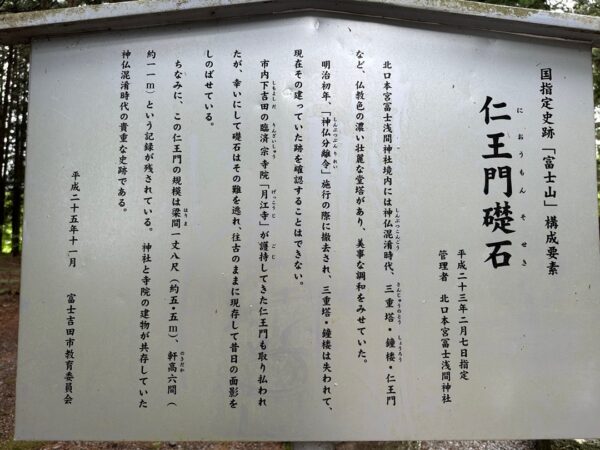 国指定史跡「富士山」構成要素
仁王門礎石
におうもんそせき
平成二十三年二月七日指定
管理者 北口本宮冨士浅間神社
北口本宮冨士浅間神社境内には神仏混淆時代、三重塔・鐘楼・仁王門
しんぶつこんこう さんじゅうのとう しょうろう
など、仏教色の濃い壮麗な堂塔があり、美事な調和をみせていた。
明治初年、「神仏分離令」施行の際に撤去され、三重塔・鐘楼は失われて、
しんぶつぶんりれい
現在その建っていた跡を確認することはできない。
市内下吉田の臨済宗寺院「月江寺」が護持してきた仁王門も取り払われ
しもよしだ りんざいしゅう げっこうじ ごじ
たが、幸いにして礎石はその難を逃れ、往古のままに現存して昔日の面影を
しのばせている。
ちなみに、この仁王門の規模は梁間一丈八尺(約五・五m)、軒高六間(
はりま のきだか
約一一m)という記録が残されている。神社と寺院の建物が共存していた
神仏混淆時代の貴重な史跡である。
平成二十五年十一月 富士吉田市教育委員会